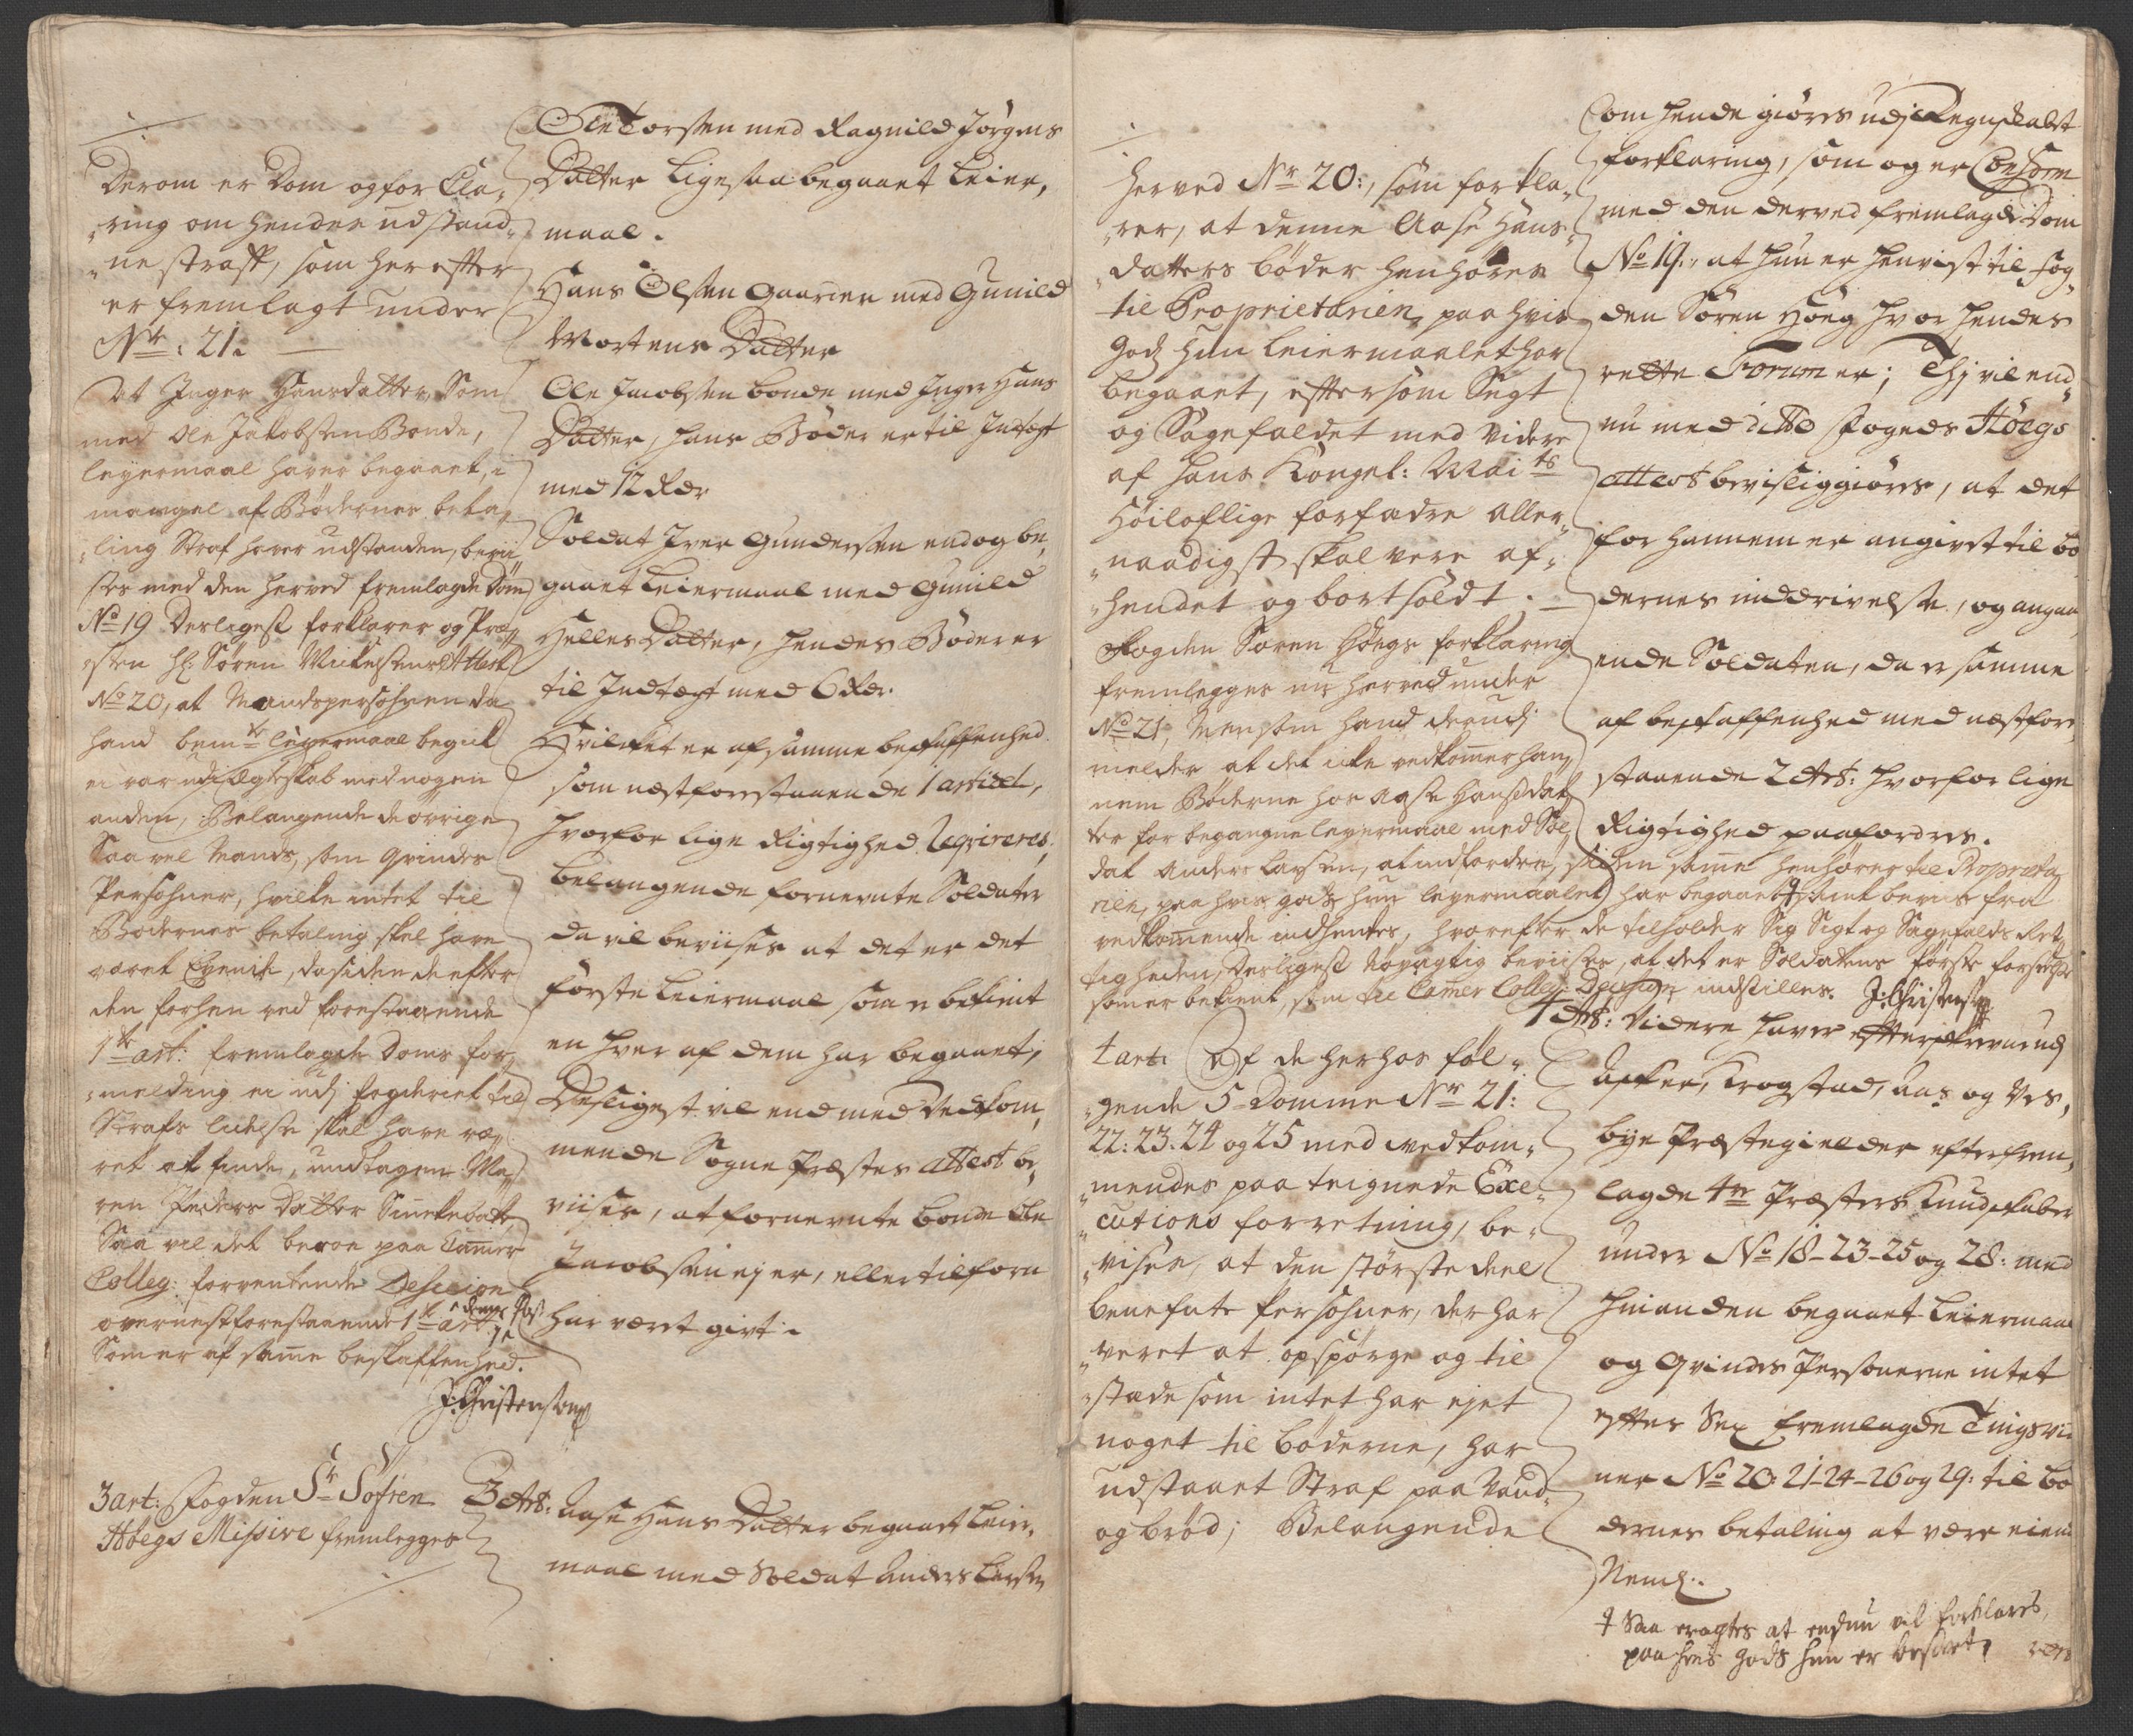 Derom er Dom og for Kla„
„ring om hendes udstand„
„ne straff, som herefter
er fremlagt under
Nr: 21.
At Inger Hansdatter, Som
med Ole Jakobsen Bonde,
leyermaal haver begaaet, i
mangel af Bødernes beta„
„ling Straf haver udstanden, bevii
ses med den herved fremlagde Dom
No 19 Desligest forklarer og Præ„
sten Hr: Søren Mickelsens Attest
No 20, at Mandspersohnen da
hand bemte leyermaal begick
ei var udi ægteskab med nogen
anden, Belangende de øvrige
Saa vel Mands, som Qvindes
Persohner, hvilke intet til
Bødernes betaling skal have
været Eyende, da siden de efter
den forhen ved forestaaende
1te art: fremlagde Doms for„
„melding ei udj fogderiet til
Strafs lidelse skal have væ„
ret at finde, undtagen Ma„
ren Peders Datter
Saa vil det beroe paa Camer
Colleg: forventende Descision
over nestforestaaende 1te art: denne Post
Som er af same beskaffenhed.
J: Christensen
3 art: Fogden Sr Søfren
Høegs Missive fremlegges
Ole Torsen med Ragnild Jørgens
Datter Ligesaa begaaet Leier„
maal.
Hans Olsen Gaarder med Gunild
Mortens Datter
Ole Jacobsen Bonde med Inger Hans
Datter, hans Bøder er til Indtegt
med 12 Rdr
Soldat Iver Gundersen end og be„
gaaet Leiermaal med Gunild
Helles Datter, hendes Bøder er
til Indtegt med 6 Rdr.
Hvilcket er af samme beskaffenhed
som næstforestaaende 1 articel,
hvorfor lige Rigtighed Reqvireres,
belangende fornevnte Soldater
da vil beviises at det er det
første Leiermaal som er bekient
en hver af dem har begaaet;
Desligest vil end med Vedkom„
mende Sogne Præstes attest be„
viises, at fornevnte Bonde Ole
Jacobsen ej er, eller tilforn
har været givt.
3 Art: Aase Hans Datter begaaet Leier„
maal med Soldat Anders Larsen
herved Nr 20:, som forkla„
„rer, at denne Aase Hans„
„datters bøder henhører
til Proprietarien, paa hvis
Godz hun leiermaalet har
begaaet, eftersom Sigt
og Sagefaldet med Videre
af Hans Kongel: Maits
Høiloflige forfædre aller„
„naadigst skal vere af„
„hendet og bortsoldt. —
Fogden Søren Høegs forklaring
fremlegges nu herved under
No 21, Men som hand derudj
melder at det icke vedkommer han„
nem Bøderne hos Aase Hansdat„
ter for begangne leyermaal med Sol„
dat Anders Larsen, at indfordre, siden same henhører til Proprieta„
rien, paa hvis gods hun leyermaalet har begaaet ꝗ samt beviis fra
vedkommende indhentes, hvorefter de tilholder Sig Sigt og Sagefalds Ret„
tigheden, Desligest Nøyagtig beviises, at det er Soldatens første forseelse
som er bekient, som til Camer Colleg: Decision indstilles. J: Christensen
4 art: Af de herhos føl„
„gende 5 Domme Nr 21:
22: 23: 24 og 25 med vedkom„
„mendes paa teignede Exe„
„cutions forretning, be„
„vises, at den største deel
benefnte Persohner, der har
„veret at opspørge og til
„stæde som intet har ejet
noget til bøderne, har
udstaaet Straf paa Vand
og brød; Belangende
Som hende giøres udj Regnskabet
forklaring, som og er Conform
med den derved fremlagde Dom
No 19., at hun er henvist til Fog„
den Søren Høeg hvor hendes
rette Forum er; Thj vil end„
nu med ditto Fogeds Høegs
attest bevisliggiøres, at det
for hannem er angivet til bø
dernes inddrivelse, og angaa
ende Soldaten, da er samme
af beskaffenhed med næstfore„
staaende 2 Art: hvorfor lige
Rigtighed paafordres.
4 Art: Videre haver efterskrevne udj
Asker, Krogstad, Aas og Ves„
bye Præstegielder efter frem„
lagde 4re Præsters Kundskaber
under No 18-23-25 og 28: med
hinanden begaaet Leiermaal
og Qvindes Personerne intet
efter Sex fremlagde Tingsvid
ner No 20: 21-24-26 og 29: til bø
dernes betaling at være eiende
Neml:.
ꝗ Saa eragtes at endnu vil forklares
paa hvis Gods hun er besovet,